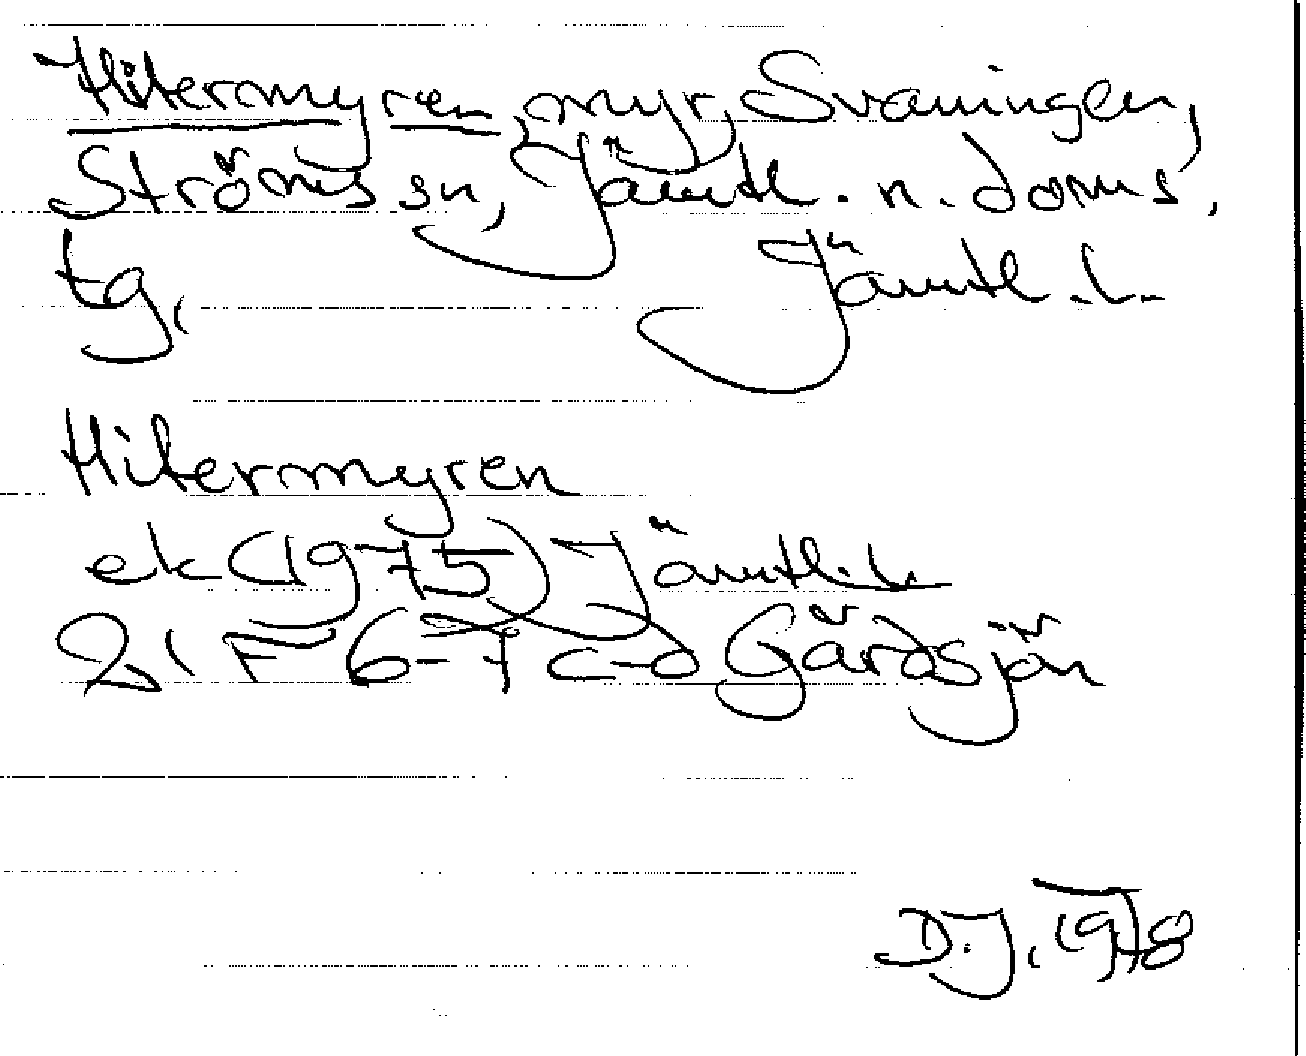 Hitermyren, myr, Svaningen,
Ströms sn, Jämtl. n. doms.
tg, Jämtl. l.
Hitermyren
ek (1975) Jämtl. l.
21 F 6-7 c-d Gårdsjön
D. J. 1978